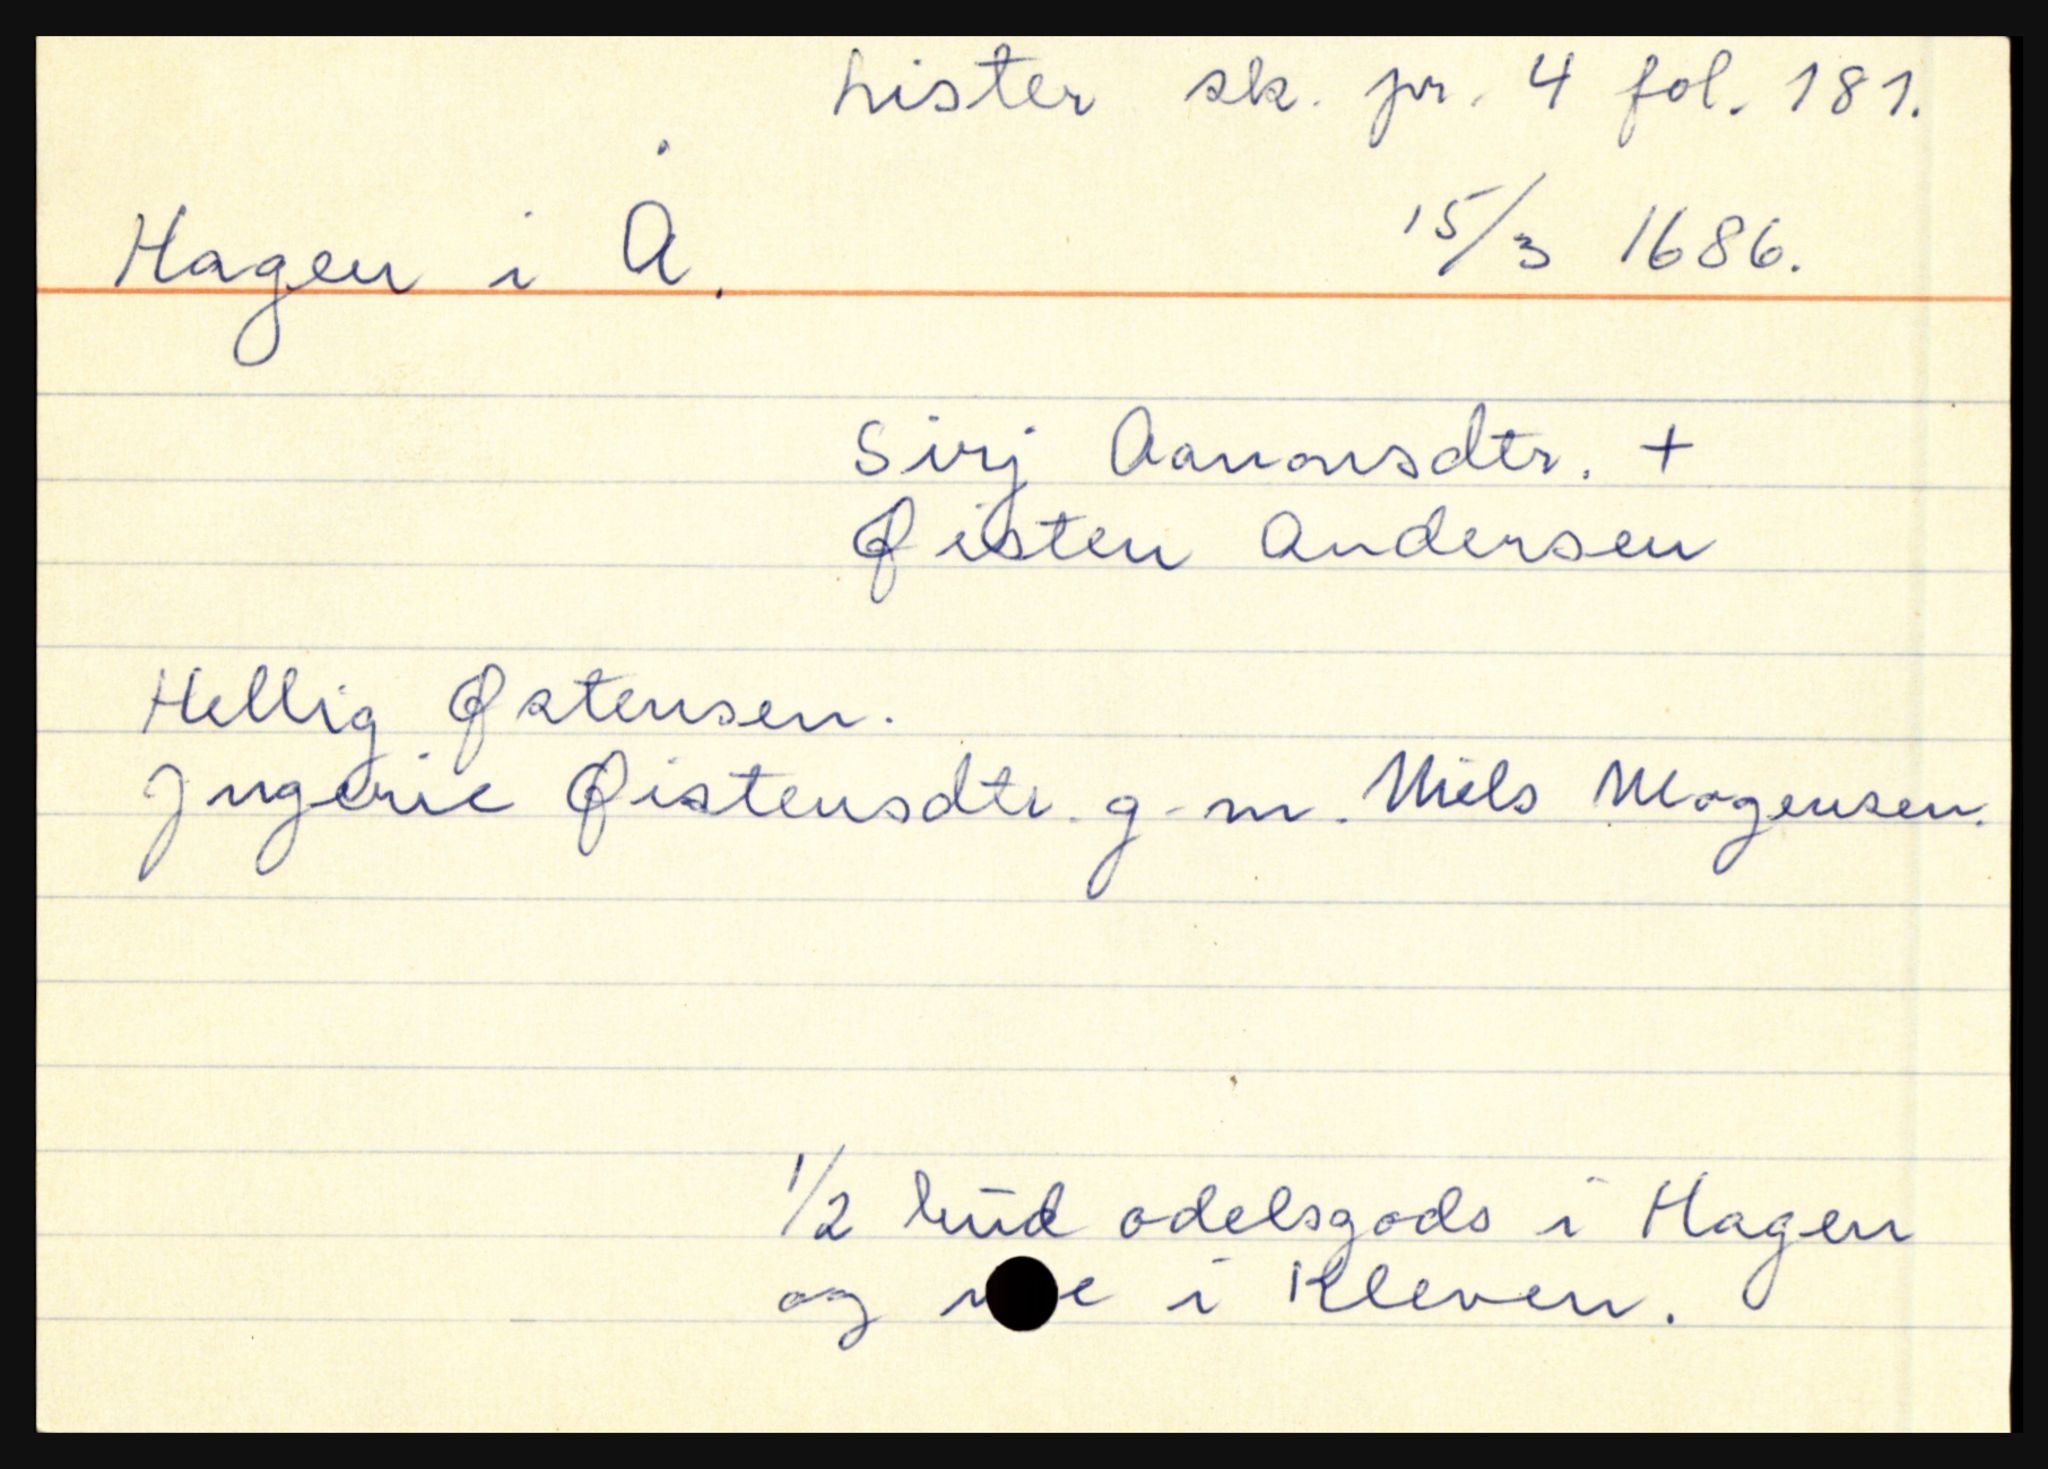 Lister sk. pr. 4 fol. 181.
Hagen i Å. 15/3 1686.
Sirj Aanonsdtr. +
Øisten Andersen
Hellig Østensen.
Jngerie Øistensdtr. g. m. Niels Mogensen.
1/2 hud odelsgods i Hagen
og i Kleven.